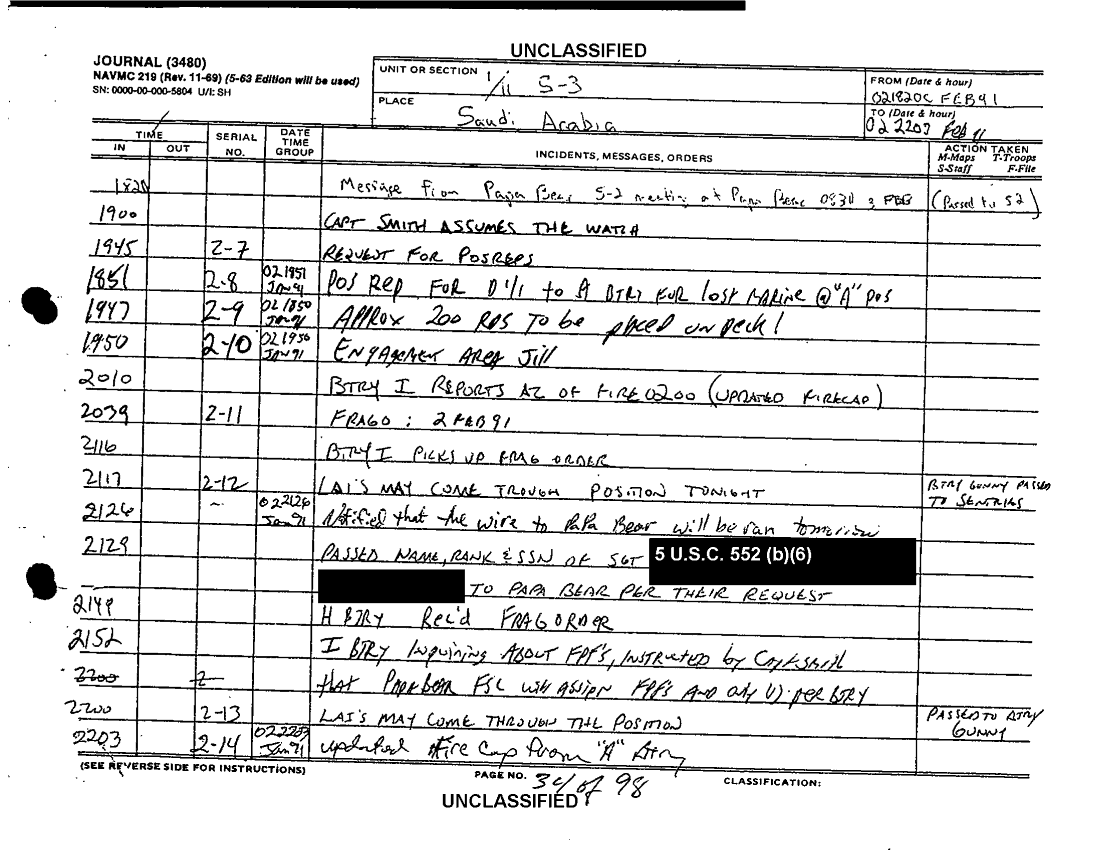 UNCLASSIFIED
JOURNAL (3480)
NAVMC 219 (Rev. 11-69) (5-63 Edition will be used)
SN: 0000-00-000-5804 U/I: SH
UNIT OR SECTION 1/11 S-3
FROM (Date & hour)
021820C FEB91
PLACE Saudi Arabia
TO (Date & hour)
02 2203 Feb 91
TIME
IN OUT
SERIAL NO.
DATE TIME GROUP
INCIDENTS, MESSAGES, ORDERS
ACTION TAKEN
M-Maps T-Troops
S-Staff F-File
1820 Message from Papa Bear S-2 meeting at Papa Bear 0830 3 FEB (Passed to S2)
1900 CAPT SMITH ASSUMES THE WATCH
1945 2-7 REQUEST FOR POSREPS
1851 2-8 021951 JAN91 POS REP FOR D 1/1 to A BTRY FOR lost MARINE @ "A" POS
1947 2-9 021850 JAN91 APPROX 200 RDS TO be placed on deck!
1950 2-10 021950 JAN91 ENGAGEMENT AREA Jill
2010 BTRY I REPORTS AZ OF FIRE 0200 (UPDATED FIRECAP)
2039 2-11 FRAGO : 2 FEB 91
2116 BTRY I PICKS UP FRAG ORDER
2117 2-12 LAI'S MAY COME TROUGH POSITION TONIGHT BTRY GUNNY PASSED TO SENTRIES
2126 ~ 022126 Jan 91 Notified that the wire to PAPA Bear will be ran tomorrow
2129 PASSED NAME, RANK & SSN OF SGT 5 U.S.C. 552 (b)(6)
TO PAPA BEAR PER THEIR REQUEST
2149 H BTRY Rec'd FRAG ORDER
2152 I BTRY Inquiring ABOUT FPF'S, INSTRUCTED by
2200 2- that PAPA BEAR FSC will assign FPF's AND only (1) per BTRY
2200 2-13 LAI'S MAY COME THROUGH THE POSITION PASSED TO BTRY GUNNY
2203 2-14 022203 Jan 91 updated Fire Cap from "A" Btry
(SEE REVERSE SIDE FOR INSTRUCTIONS)
PAGE NO. 34 of 98
CLASSIFICATION:
UNCLASSIFIED